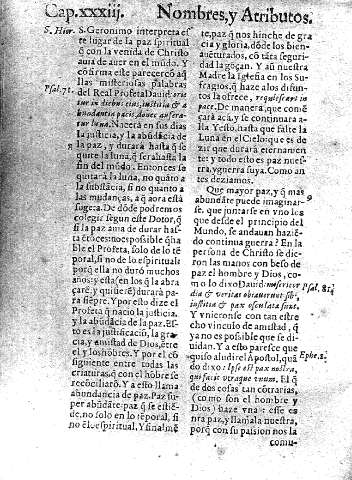 Cap. xxxiij. Nombres, y Atributos.
S. Hier.
S. Geronimo interpreta es
te lugar de la paz spiritual
q̃ con la venida de Christo
auia de auer en el mũdo. Y
cõfirma este parecer cõ aq̃
llas misteriosas palabras
Psal. 71.
del Real Propheta Dauid: orie
tur in diebus eius, iustitia & a
bundantia pacis, donec auferas
tur luna. Nacerá en sus dias
la justicia, y la abũdãcia de
la paz, y durará hasta q̃ se
quite la luna, q̃ será hasta la
fin del mũdo. Entonces se
quitará la luna, no quãto a
la substãcia, si no quanto a
las mudanças, a q̃ aora está
sugeta. De dõde podremos
colegir segun este Dotor, q̃
si la paz auia de durar has
ta ẽtõces: no es posible q̃ ha
ble el Profeta, solo de lo tẽ
poral, si no de lo espiritual
porq̃ ella no duró muchos
años: y esta (en los q̃ la abra
çarẽ, y quisierẽ) durará pa
ra siẽpre. Y por esto dize el
Profeta q̃ nacio la justicia,
y la abũdãcia de la paz. Es
to es la justificaciõ, la gra
cia, y amistad de Dios, ẽtre
el y los hõbres. Y por el cõ
siguiente entre todas las
criaturas, q̃ con el hõbre se
recõciliarõ. Y a esto llama
abundancia de paz. Paz su
per abũdãte: paz q̃ se estiẽ-
de, no solo en lo tẽporal, si
no ẽ lo espiritual. Y finalmẽ
te, paz q̃ nos hinche de gra
cia y gloria, dõde los bien
auẽturados, cõ tãta seguri
dad la goçan. Y aũ nuestra
Madre la Iglesia en los Su
fragios, q̃ haze a los difun
tos la ofrece, requiescant in
pace. De manera, que comẽ
çará acá, y se continuara a
lla. Y esto, hasta que falte la
Luna en el Cielo: que es de
zir que durará eternamen
te: y todo esto es paz nues
tra, y guerra suya. Como an
tes deziamos.
Que mayor paz, y q̃ mas
abundãte puede imaginar-
9
se, que juntarse en vno los
que desde el principio del
Mundo, se andauan haziẽ-
do continua guerra? En la
persona de Christo se die-
ron las manos con beso de
paz el hombre y Dios, co-
mo lo dixo Dauid: misericor
Psal. 84.
dia & veritas obiauerunt sibi,
iustitia & pax osculatæ sunt.
Y vnieronse con tan estre
cho vinculo de amistad, q̃
ya no es posible que se di-
uidan. Y a esto paresce que
quiso aludir el Apostol, quã
Ephe. 2.
do dixo: Ipse est pax nostra,
qui facit vtraque vnum. El q̃
de dos cosas tan cõtrarias,
(como son el hombre y
Dios) haze vna: esse es
nra paz, y llamala nuestra,
porq̃ con su passion nos la
comu-